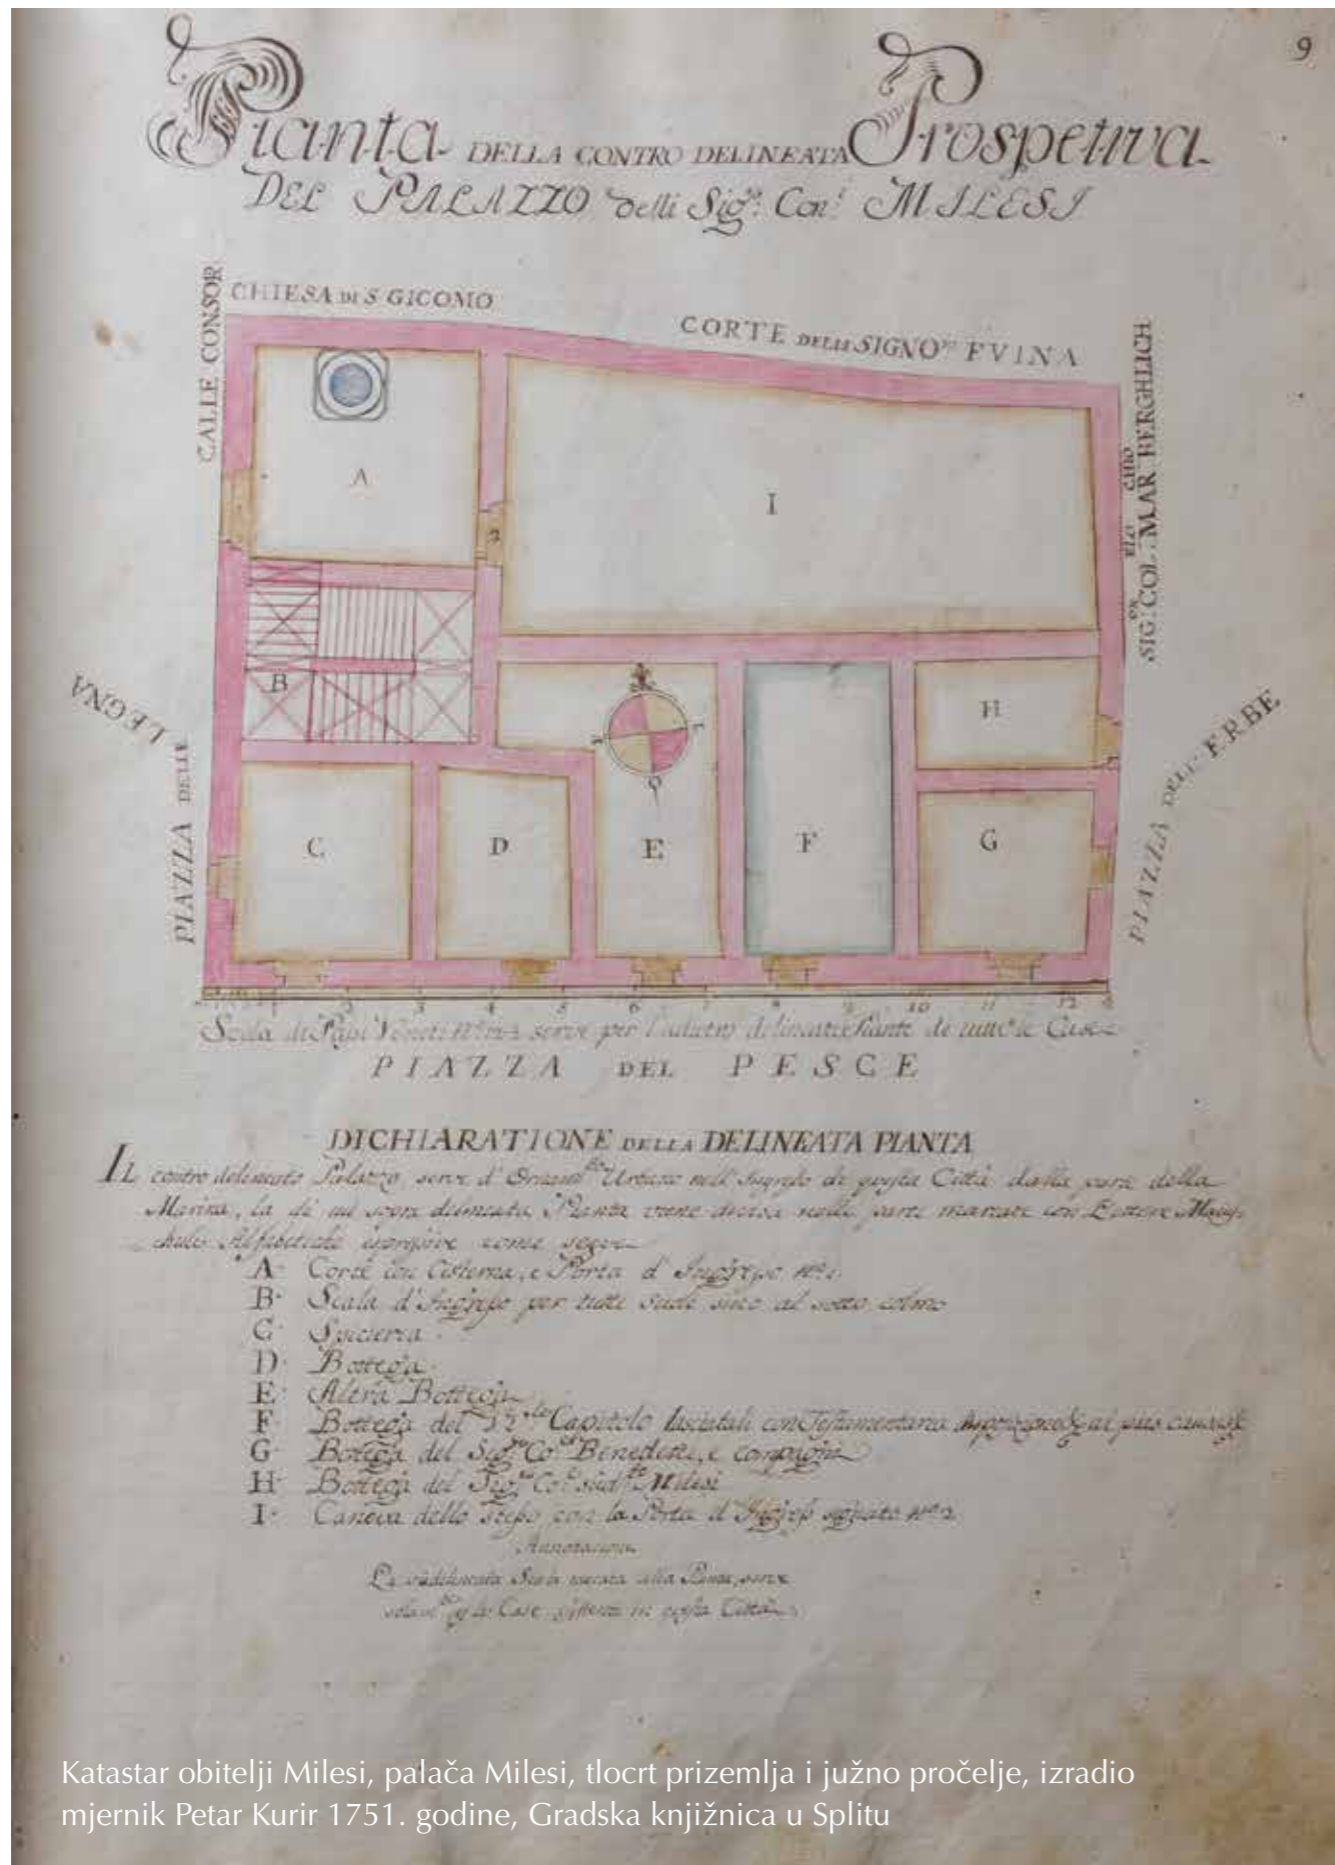 9
Pianta DELLA CONTRO DELINEATA Prospetiva
DEL PALAZZO delli Sig.ri Con.i MILESI
CALLE CONSOR
CHIESA DI S GICOMO
CORTE DELLI SIGNO FVINA
SIG: COL: MAR BERGHLICH
A
I
2
B
H
PIAZZA DELLE LEGNA
PIAZZA DELL' ERBE
C
D
E
F
G
O
1 2 3 4 5 6 7 8 9 10 11 12
Scala di Passi Veneti serve per delineate Piante de Case
PIAZZA DEL PESCE
DICHIARATIONE DELLA DELINEATA PIANTA
IL contro delineato Palazzo serve d' Ornam.to Urbano nell' Ingresso di questa Città dalla parte della
Marina, la di cui sovra delineata Pianta viene divisa nelle parti marcate con Lettere
Alfabetiche come segue
A Corte con Cisterna, e Porta d' Ingresso
B Scala d' Ingresso per tutti sino al sotto colmo
C Spicieria
D Bottega
E Altra Bottega
F Bottega del Capitolo con Testamentaria
G Bottega del Sig. Co. Benedetti, e compagni
H Bottega del Sig. Co. Milesi
I Caneva dello stesso con la Porta d' Ingresso segnato 2
Annotacion
La Scala alla Pianta, serve
Case in questa Città
Katastar obitelji Milesi, palača Milesi, tlocrt prizemlja i južno pročelje, izradio
mjernik Petar Kurir 1751. godine, Gradska knjižnica u Splitu